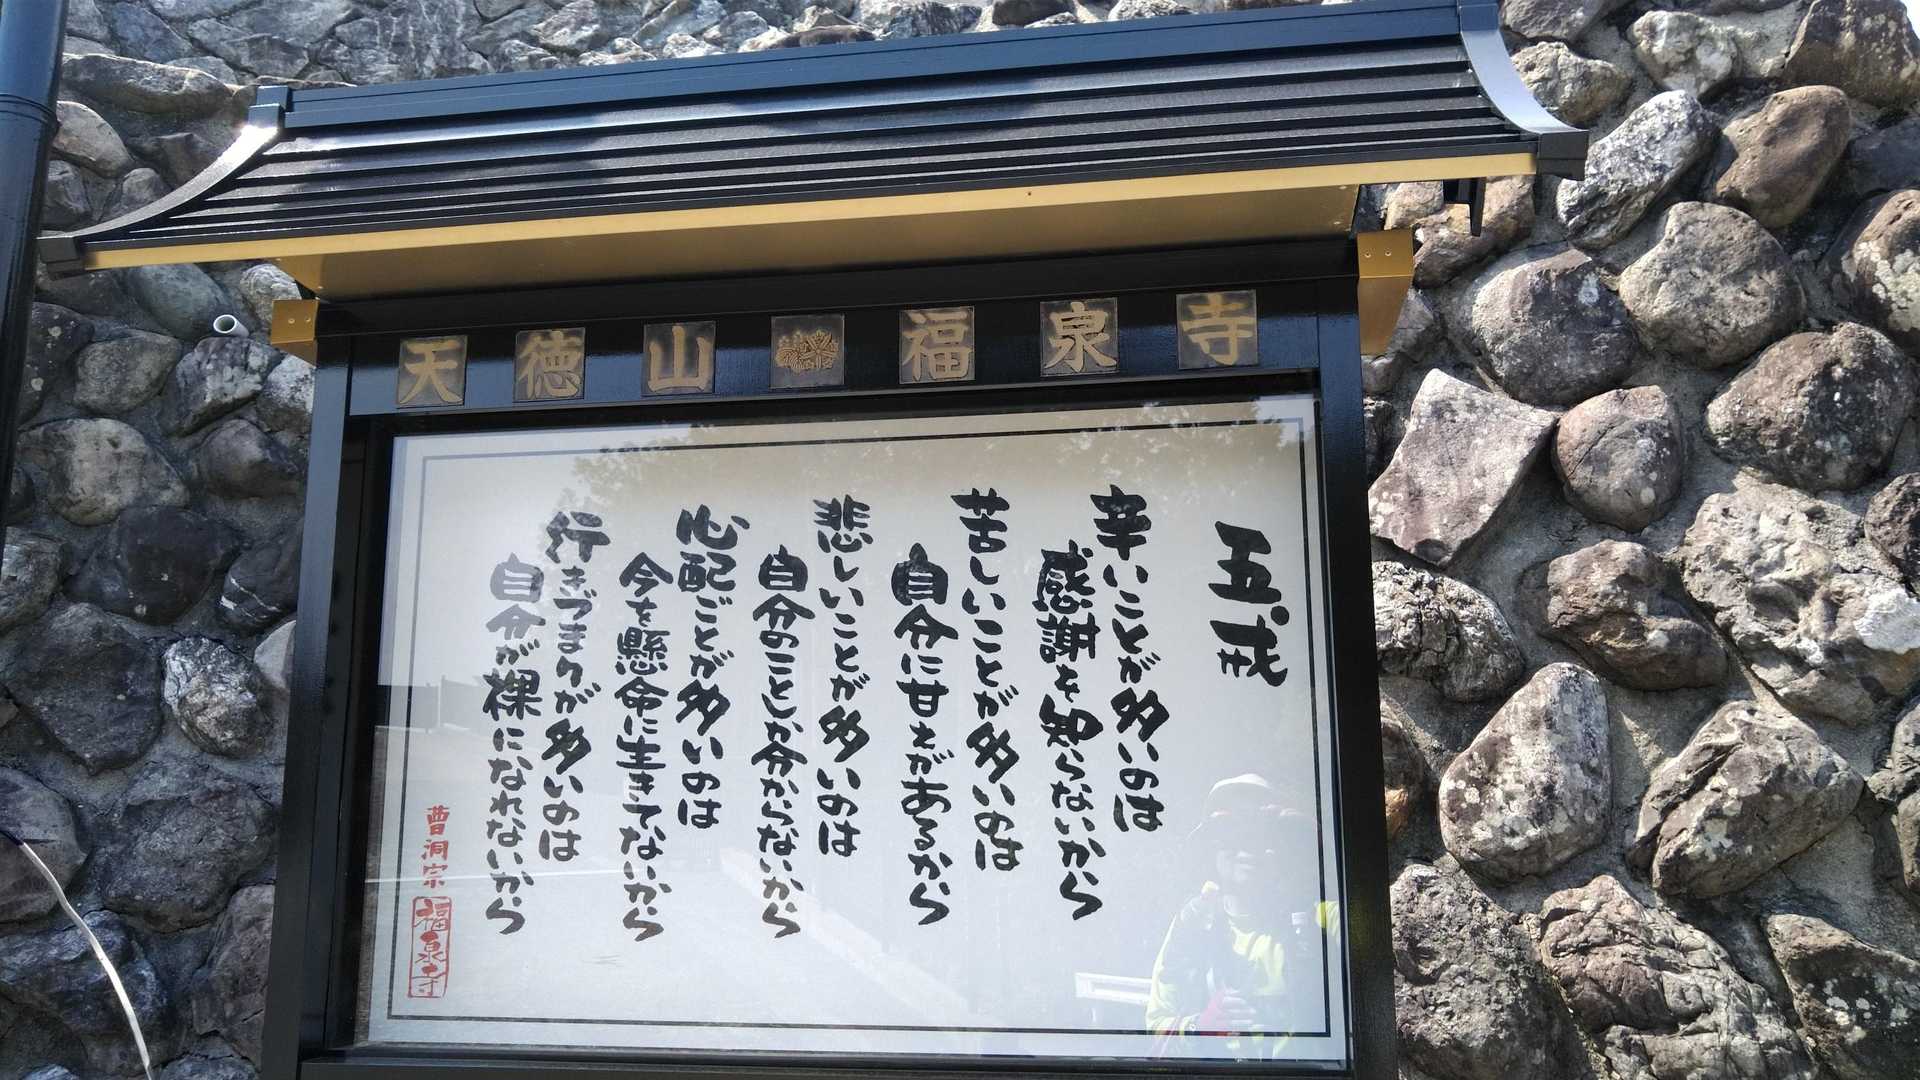 天徳山 福泉寺
五戒
辛いことが多いのは
感謝を知らないから
苦しいことが多いのは
自分に甘えがあるから
悲しいことが多いのは
自分のことしか分からないから
心配ごとが多いのは
今を懸命に生きてないから
行きづまりが多いのは
自分が裸になれないから
曹洞宗
福泉寺